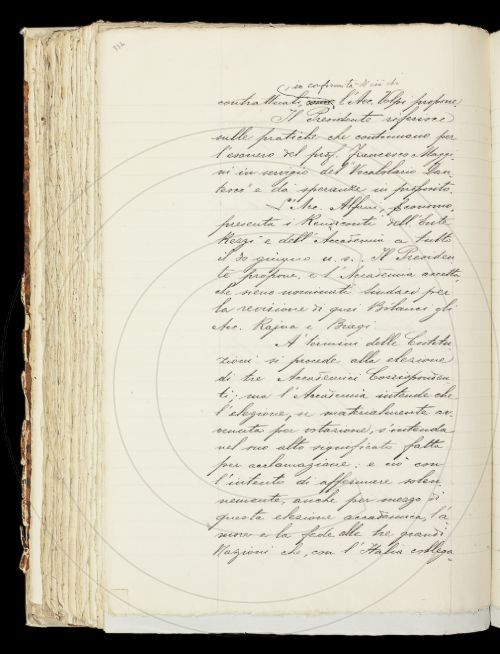 in conformità di ciò che
contrattuali, l'Acc. Volpi propone
Il Presidente riferisce
sulle pratiche che continuano per
l'esonero del prof. Francesco Maggi-
ni in servigio del "Vocabolario Dan-
tesco" e dà speranze in proposito.
L'Acc. Alfani, Economo,
presenta i Rendiconti dell'Ente
Rezzi e dell'Accademia a tutto
il 30 giugno u. s. Il Presiden-
te propone, e l'Accademia accetta,
che sieno nominati Sindaci per
la revisione di quei Bilanci gli
Acc. Rajna e Biagi.
A termini delle Costitu-
zioni si procede alla elezione
di tre Accademici Corrisponden-
ti; ma l'Accademia intende che
l'elezione, se materialmente av-
venuta per votazione, s'intenda
nel suo alto significato fatta
per acclamazione: e ciò con
l'intento di affermare solen-
nemente, anche per mezzo di
questa elezione accademica, l'a-
more e la fede alle tre grandi
Nazioni che, con l'Italia collega-